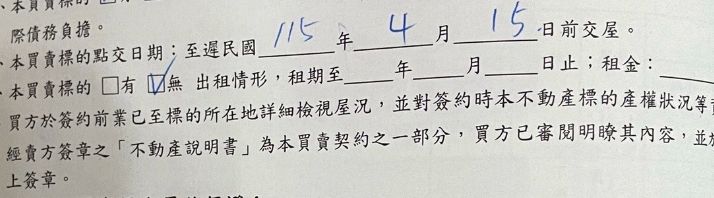 、本買賣標的
際債務負擔。
、本買賣標的點交日期：至遲民國115年4月15日前交屋。
、本買賣標的 □有 ☑無 出租情形，租期至____年____月____日止；租金：____
買方於簽約前業已至標的所在地詳細檢視屋況，並對簽約時本不動產標的產權狀況等
經賣方簽章之「不動產說明書」為本買賣契約之一部分，買方已審閱明瞭其內容，並
上簽章。